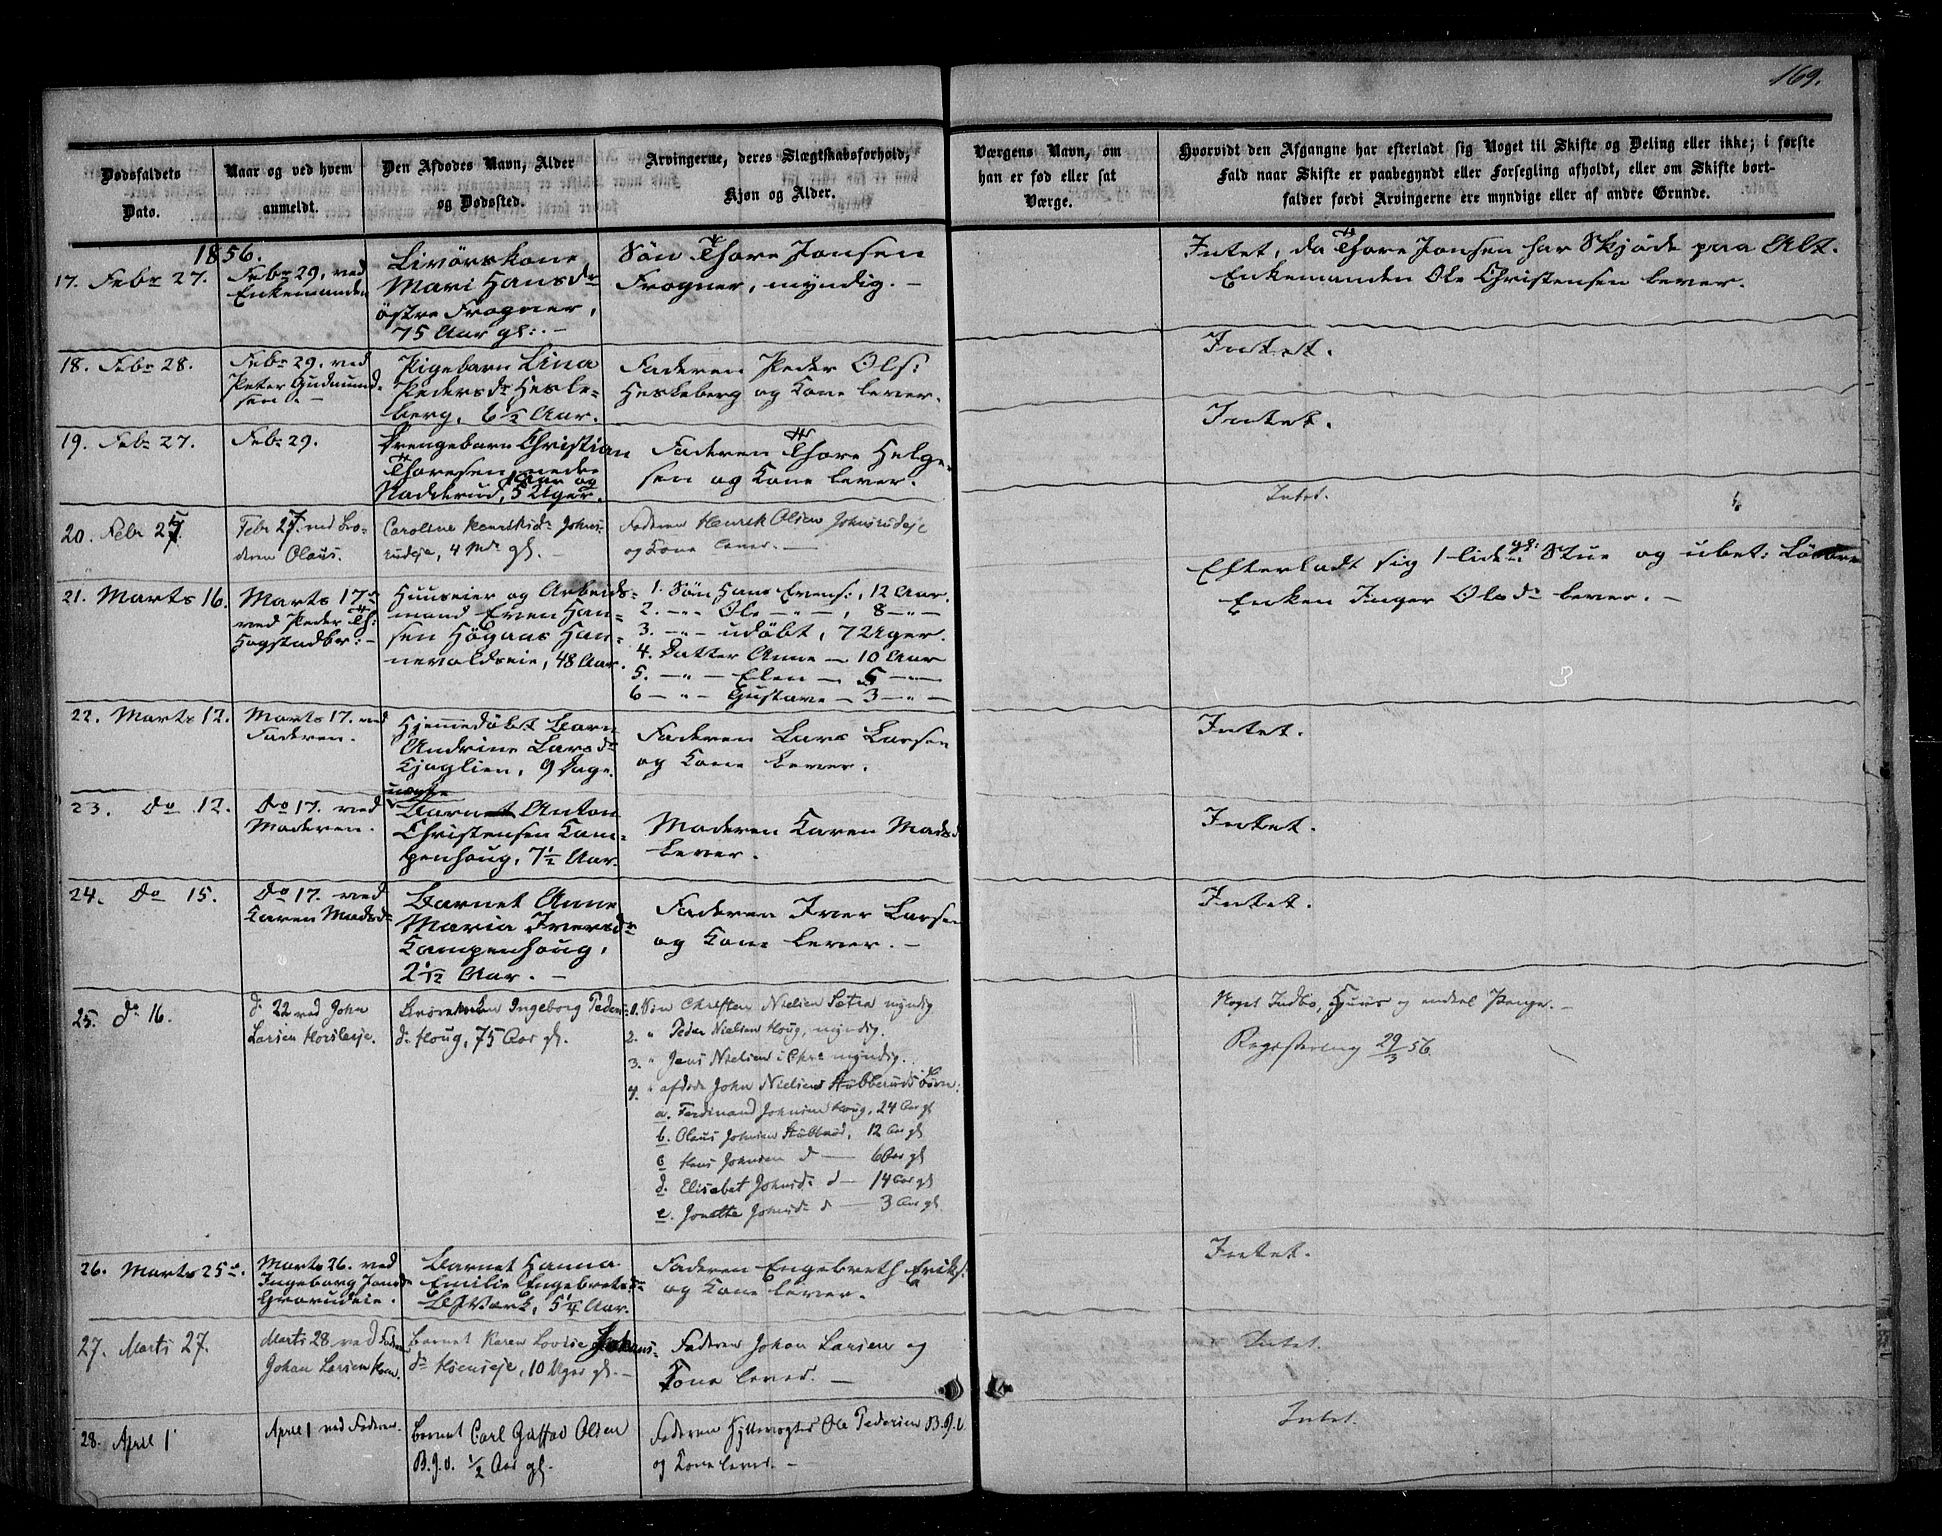 169.
Dødsfaldets
Dato.
Naar og ved hvem
anmeldt.
Den Afdødes Navn, Alder
og Dødssted.
Arvingerne, deres Slægtskabsforhold,
Kjøn og Alder.
Værgens Navn, om
han er fød eller sat
Værge.
Hvorvidt den Afgangne har efterladt sig Noget til Skifte og Deling eller ikke; i første
Fald naar Skifte er paabegyndt eller Forsegling afholdt, eller om Skifte bort-
falder fordi Arvingerne ere myndige eller af andre Grunde.
1856.
17. Febr 27.
Febr 29, ved
Enkemanden
Livörskone
Mari Hansdr
östre Frogner,
75 Aar gl: -
Sön Thore Jonsen
Frogner, myndig. -
Intet, da Thore Jonsen har Skjöde paa Alt.
Enkemanden Ole Christensen lever.
18. Febr 28.
Febr 29. ved
Peter Gudmund-
sen. -
Pigebarn Lina
Pedersdr Hesle-
berg, 6½ Aar.
Faderen Peder Ols:
Heskeberg og Kone lever.
Intet.
19. Febr 27.
Febr 29.
Drengebarn Christian
Thoresen nedre
Nadderud, 5 Uger.
Faderen Thore Helge-
sen og Kone lever.
Intet.
20. Febr 27
Febr 27 ved Bro-
deren Olaus.
Caroline Henriksdr Johns-
rudeje, 4 Mdr gl. -
Faderen Henrik Olsen Johnsrudeje
og Kone lever. -
Intet.
21. Marts 16.
Marts 17de
ved Peder Th:
Hogstadbr: -
Huuseier og Arbeids-
mand Even Han-
sen Högaas Han-
nevoldseie, 48 Aar.
1. Sön Hans Evens:, 12 Aar.
2. -"- Ole -"-, 8 -"-
3. -"- udöbt, 7 Uger.
4. Datter Anne - 10 Aar
5. -"- Elen - 5 -"-
6 -"- Gustava - 3 -"-
Efterladt sig 1 liden gl: Stue og ubet: Lösöre
Enken Inger Olsdr lever. -
22. Marts 12.
Marts 17. ved
Faderen.
Hjemmedöbt Barn
Andrine Larsdr
Kjaglien, 9 Dage.
Faderen Lars Larsen
og Kone lever.
Intet.
23. Do 12.
Do 17. ved
Moderen.
uægte
Barn Anton
Christensen Kam-
penhoug, 7½ Aar.
Moderen Karen Madsd
lever.
Intet.
24. Do 15.
Do 17. ved
Karen Madsdr
Barnet Anne
Maria Iversdr
Kampenhoug,
2 1/12 Aar. -
Faderen Iver Larsen
og Kone lever. -
Intet.
25. do 16.
do 22 ved John
Larsen Horsleje.
Ingeborg Peders-
dr Houg, 75 Aar gl.
1. Søn Christen Nielsen Sætra myndig
2. " Peder Nielsen Houg, myndig.
3. " Jens Nielsen i Chra myndig.
4. " afdøde John Nielsens Stubberuds Børn:
a. Ferdinand Johnsen Houg, 24 Aar gl
b. Olaus Johnsen Stubberud, 12 Aar gl
c Hans Johnsen d - 6 Aar gl
d. Elisabet Johnsdr d - 14 Aar gl
e. Jonetta Johnsdr d - 3 Aar gl
Noget Indbo, Huus og endeel Penge. -
Registrering 29/3 56.
26. Marts 25de
Marts 26. ved
Ingeborg Jonsdr
Grorudeie.
Barnet Hanna
Emilie Engebretsdr
Værk, 5¼ Aar.
Faderen Engebreth Eriks:
og Kone lever.
Intet.
27. Marts 27.
Marts 28 ved Faderen
Johan Larsen
Barnet Karen Lovise Johans-
dr, 10 Uger gl. -
Faderen Johan Larsen og
Kone lever. -
Intet.
28. April 1
April 1 ved Faderen.
Barnet Carl Gustav Olsen
B.J.V. ½ Aar gl.
Faderen Hyttevogter Ole Pedersen B.J.V
og Kone lever. -
Intet.